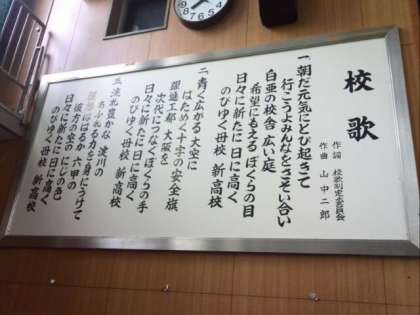 校歌
作詞 校歌制定委員会
作曲 山中二郎
一、朝だ元気にとび起きて
行こうよみんなをさそい合い
白亜の校舎 広い庭
希望にもえる ぼくらの目
日々に新たに 日に高く
のびゆく母校 新高校
二、青く広がる 大空に
はためく十字の 安全旗
躍進工都 大阪を
次代につなぐ ぼくらの手
日々に新たに 日に高く
のびゆく 母校 新高校
三、流れ豊かな 淀川の
あふれる力を 身につけて
はるか 六甲の
彼方の空の にじの色
日々に新たに 日に高く
のびゆく 母校 新高校